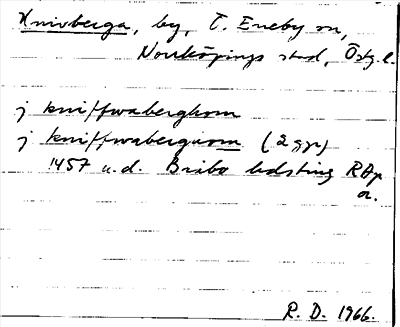 Knivberga, by, Ö. Eneby sn,
Norrköpings stad, Östg.l.
j kniffwaberghom
j kniffwabergum (2 ggr)
1457 u.d. Bråbo hdsting RAp
or.
R. D. 1966.